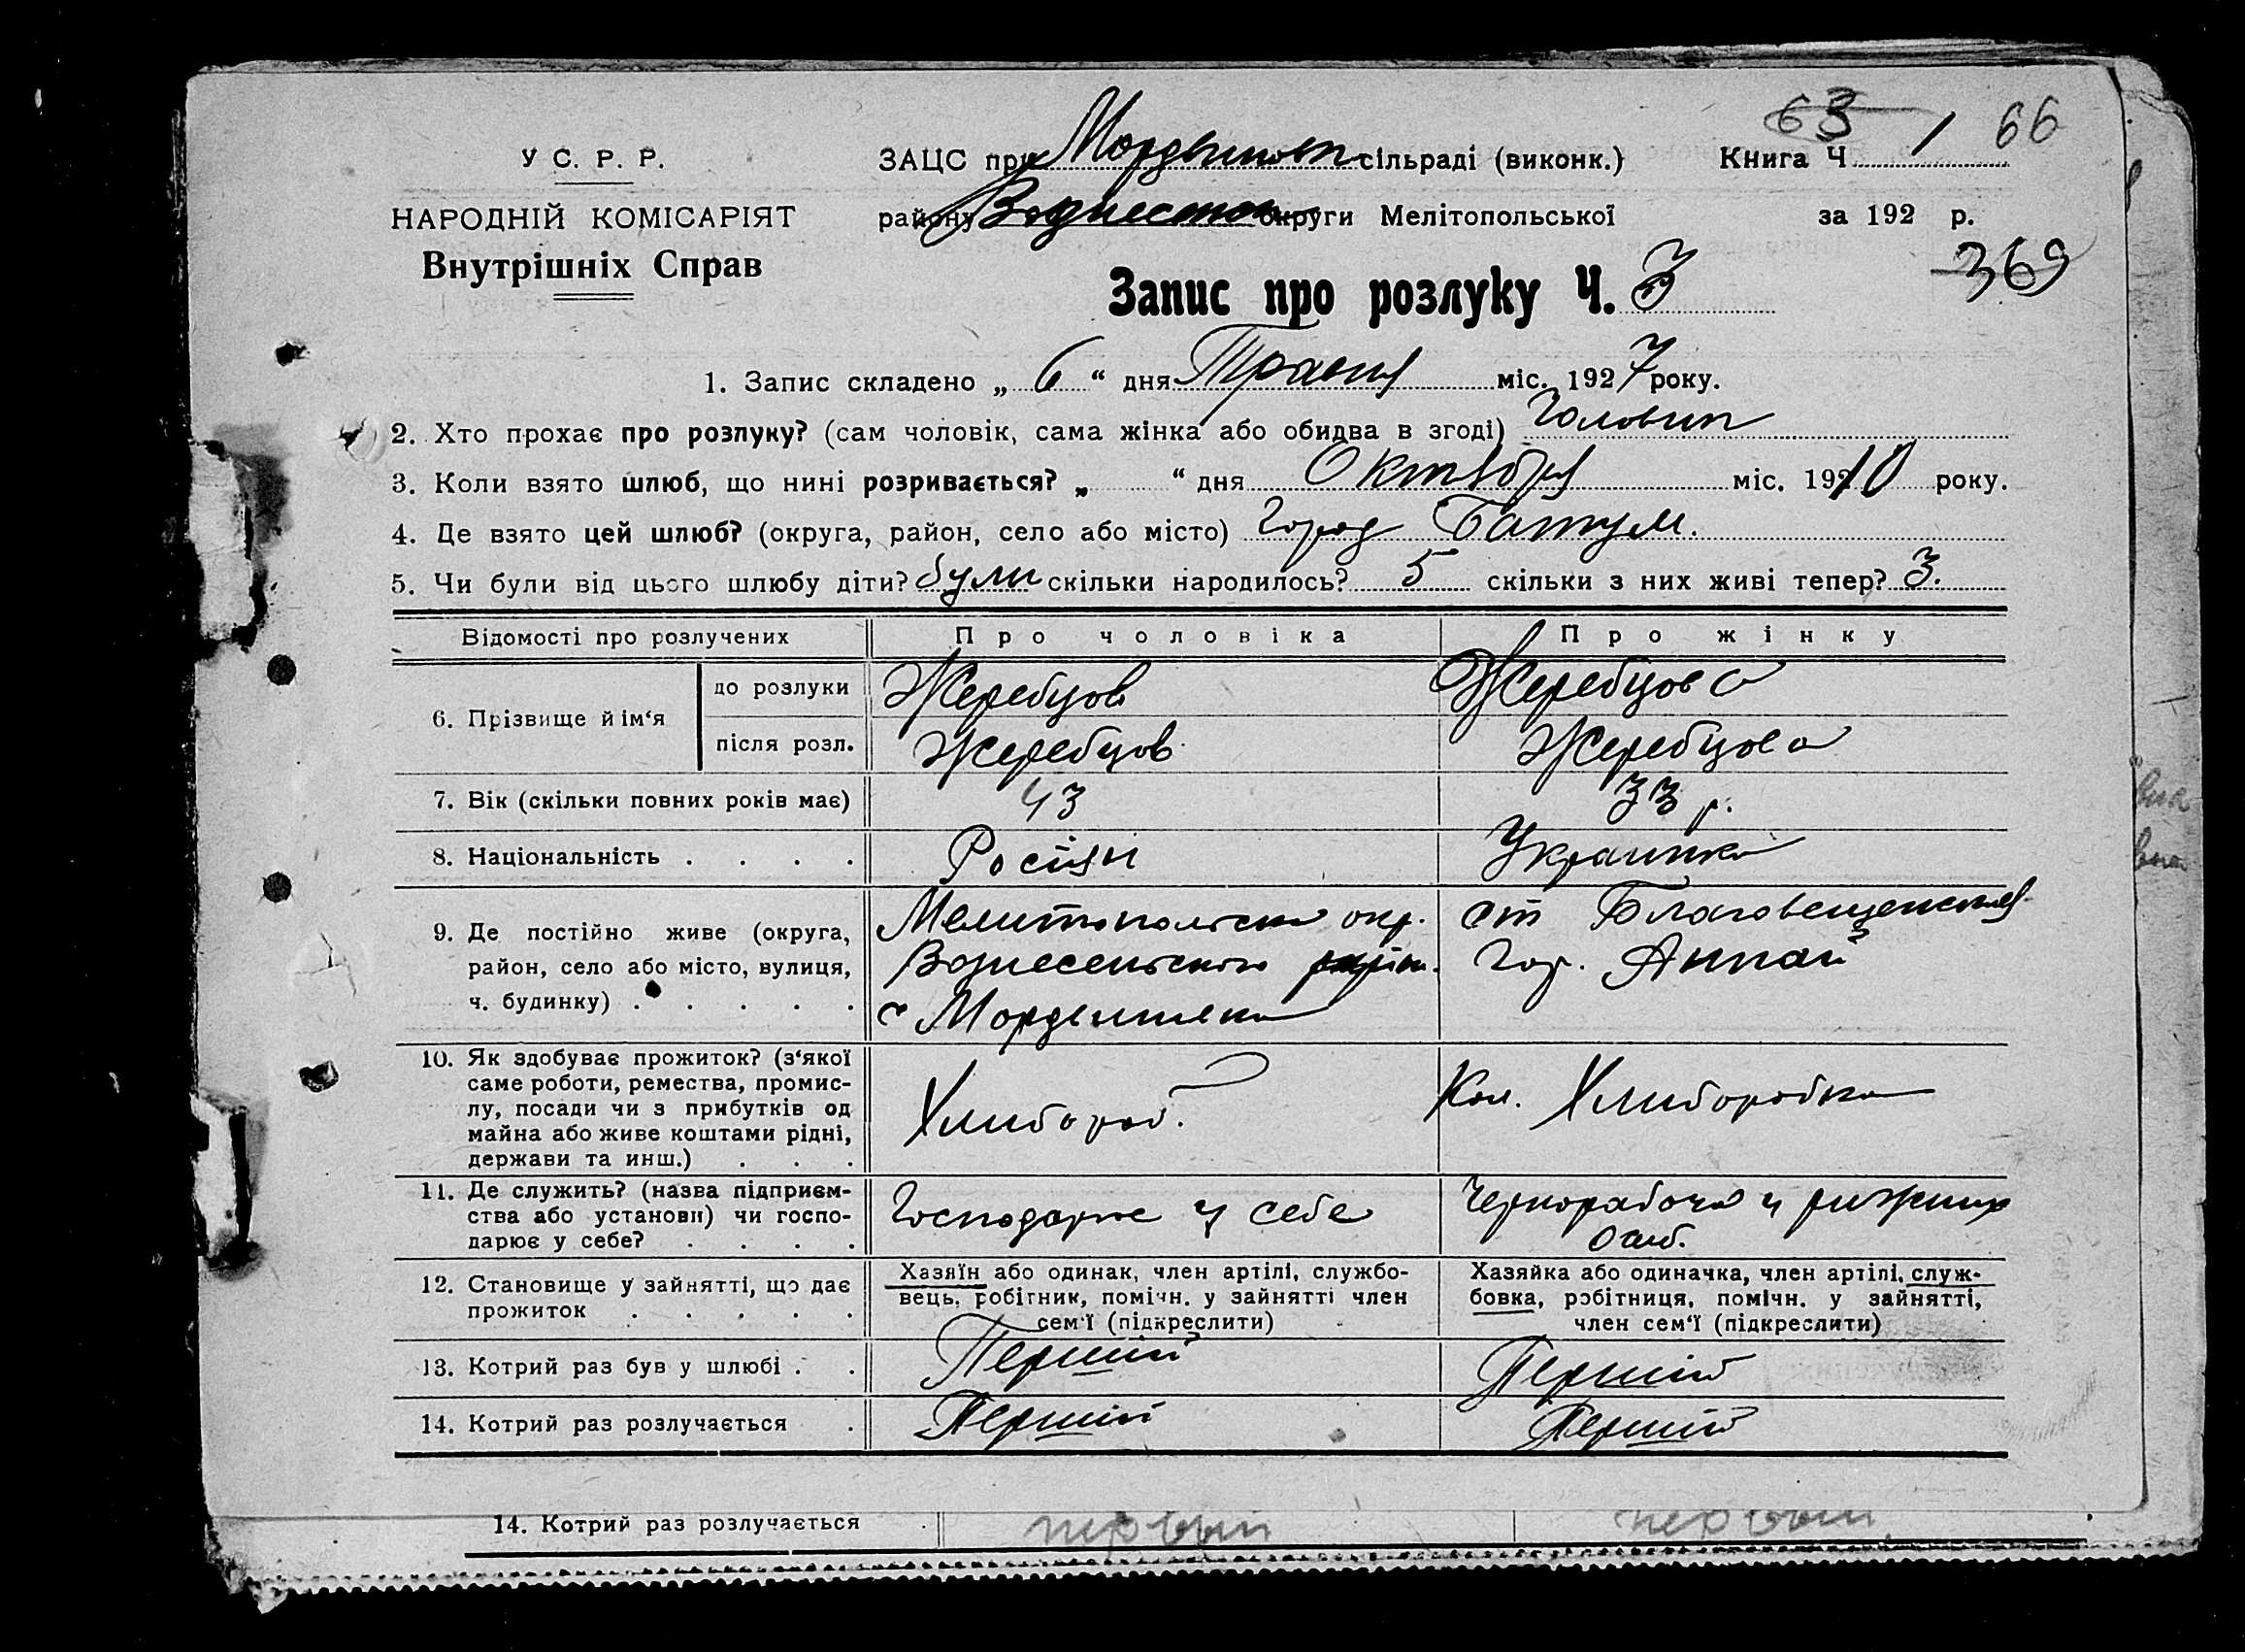 63 66
У С. Р. Р.
ЗАЦС при сільраді (виконк.) Книга Ч 1
НАРОДНІЙ КОМІСАРІЯТ
району округи Мелітопольської за 192 р.
Внутрішніх Справ
369
Запис про розлуку Ч. 3
1. Запис складено „ 6 “ дня Травня міс. 1927 року.
2. Хто прохає про розлуку? (сам чоловік, сама жінка або обидва в згоді)
3. Коли взято шлюб, що нині розривається? „ “ дня Октября міс. 1910 року.
4. Де взято цей шлюб? (округа, район, село або місто) Город Батум.
5. Чи були від цього шлюбу діти? були скільки народилось? 5 скільки з них живі тепер? 3.
Відомості про розлучених Про чоловіка Про жінку
6. Прізвище й ім‘я
до розлуки Жеребцов Жеребцова
після розл. Жеребцов Жеребцова
7. Вік (скільки повних років має) 43 33 р.
8. Національність . . . . Росіян Украинка
9. Де постійно живе (округа, район, село або місто, вулиця, ч. будинку) . . . . .
Мелитопольска окр.
Вознесенского
с Мордвиновка
ст Благовещенская
Гор. Анпай
10. Як здобуває прожиток? (з‘якої
саме роботи, ремества, промис-
лу, посади чи з прибутків од
майна або живе коштами рідні,
держави та инш.) . . .
Хлибороб.
Хлиборобка
11. Де служить? (назва підприєм-
ства або установи) чи госпо-
дарює у себе? . . . .
Господарює у себе
Чернорабоча у рижних
осиб.
12. Становище у зайнятті, що дає
прожиток . . . . .
Хазяїн або одинак, член артілі, службо-
вець, робітник, помічн. у зайнятті член
сем‘ї (підкреслити)
Хазяйка або одиначка, член артілі, служ-
бовка, робітниця, помічн. у зайнятті,
член сем‘ї (підкреслити)
13. Котрий раз був у шлюбі . . Перший Перший
14. Котрий раз розлучається . Перший Перший
14. Котрий раз розлучається . первый первый